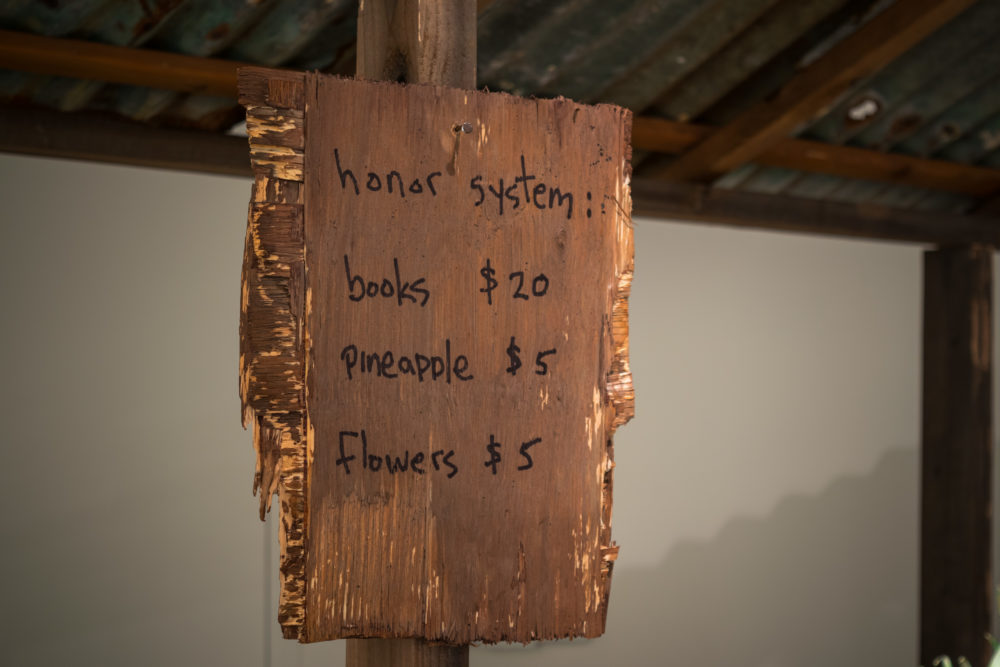 honor system:
books $20
pineapple $5
Flowers $5